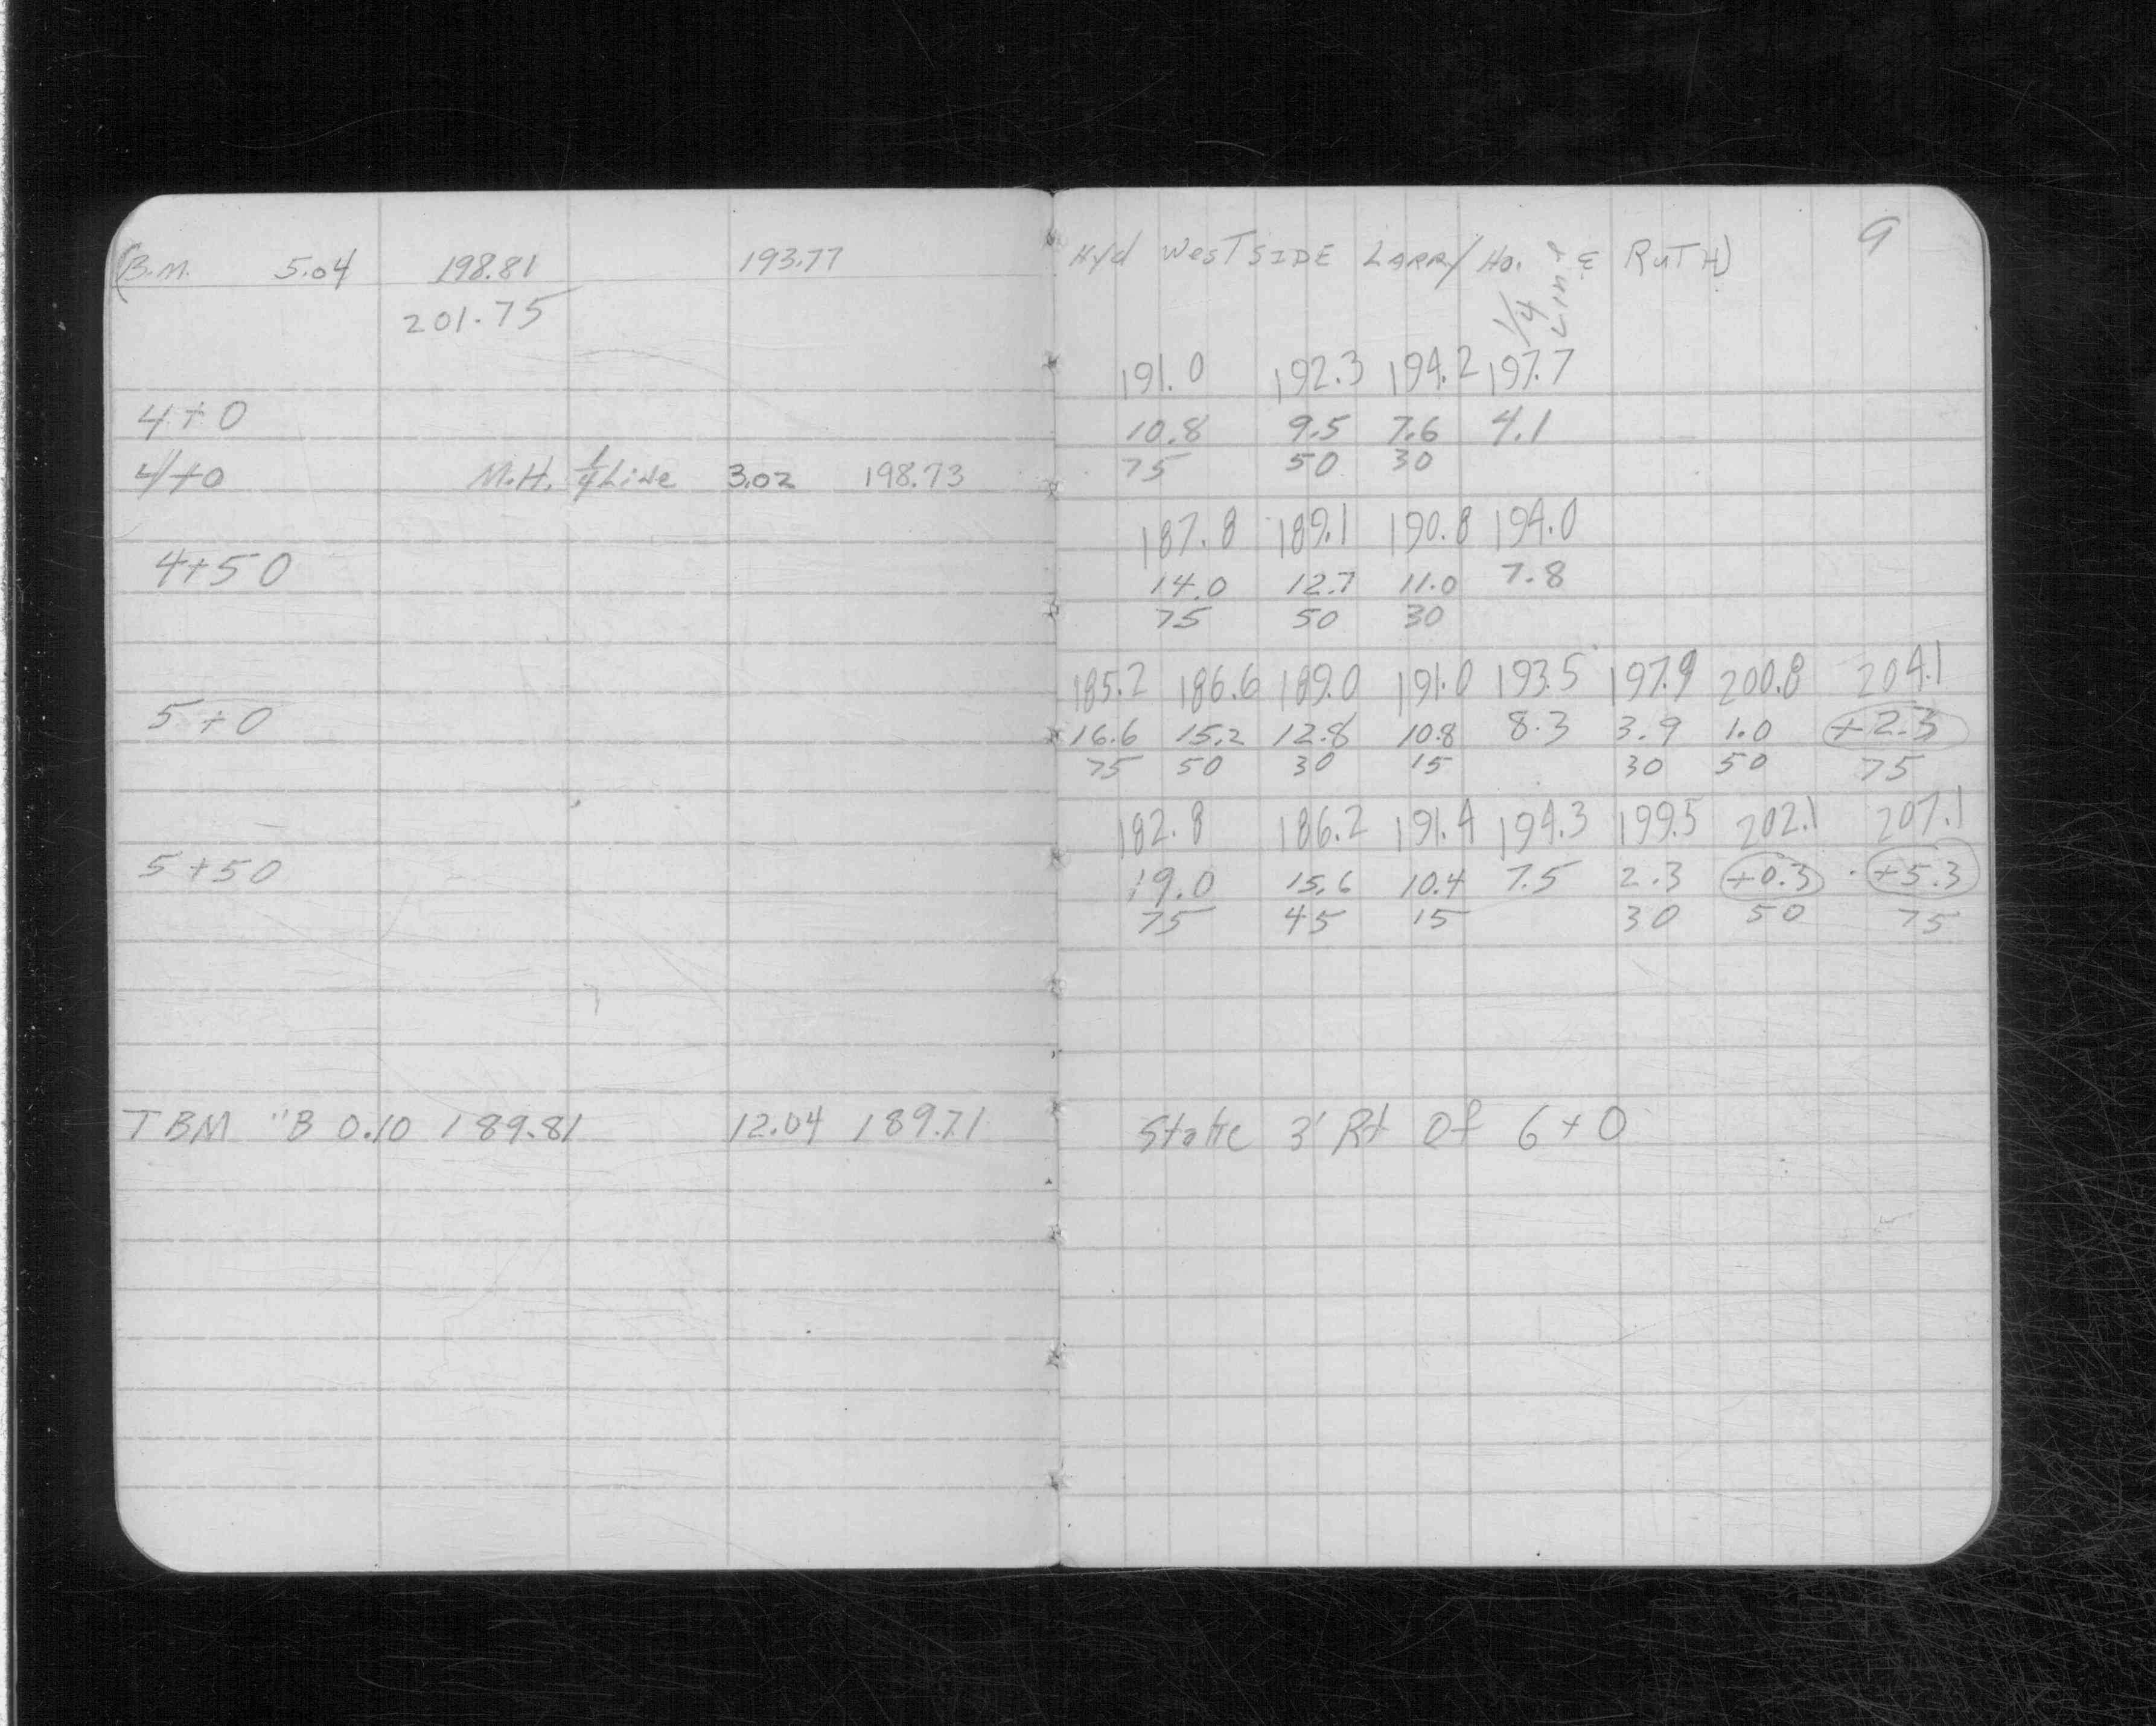 (B.M. 5.04 198.81 193.77 Hyd West SIDE LARRY Ho. & RUTH) 9
201.75 1/4 Line
191.0 192.3 194.2 197.7
4+0 10.8 9.5 7.6 4.1
4+0 M.H. 1/4 Line 3.02 198.73 75 50 30
187.8 189.1 190.8 194.0
4+50 14.0 12.7 11.0 7.8
75 50 30
185.2 186.6 189.0 191.0 193.5 197.9 200.8 204.1
5+0 16.6 15.2 12.8 10.8 8.3 3.9 1.0 +2.3
75 50 30 15 30 50 75
182.8 186.2 191.4 194.3 199.5 202.1 207.1
5+50 19.0 15.6 10.4 7.5 2.3 +0.3 +5.3
75 45 15 30 50 75
TBM "B 0.10 189.81 12.04 189.71 Stake 3' Rt Of 6+0